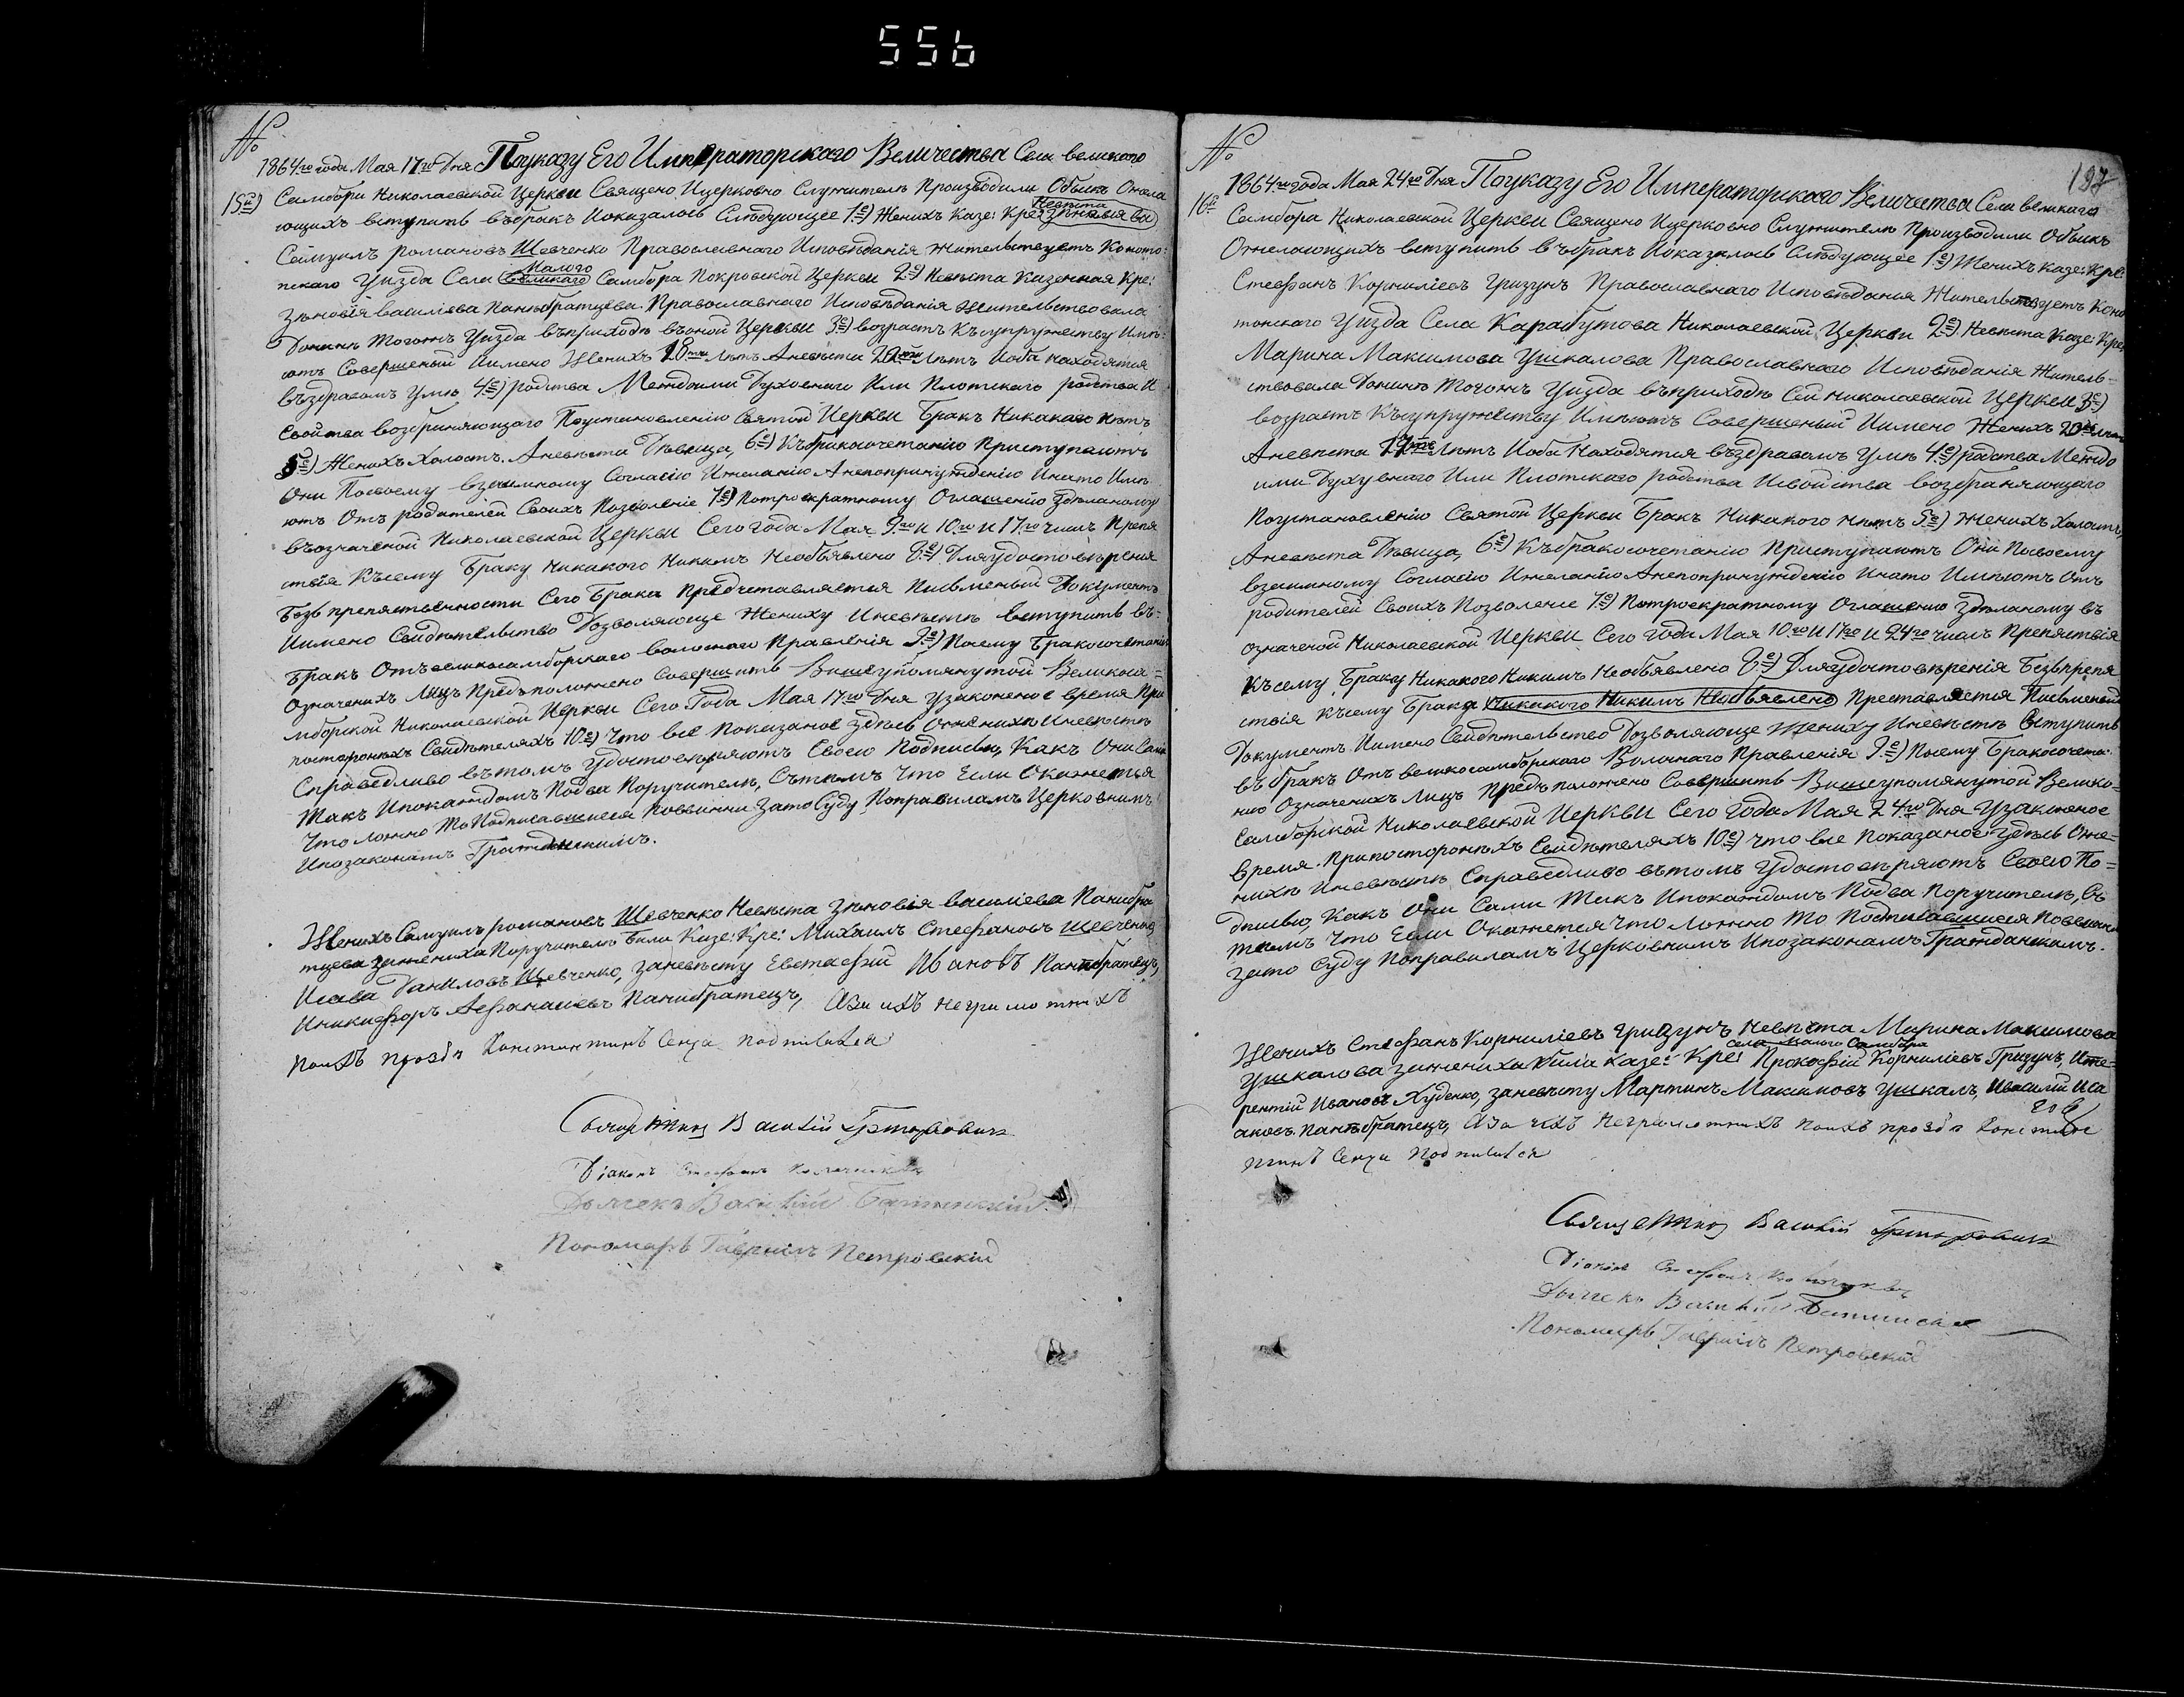 556
№
1864го года Мая 17го Дня Поуказу Его Императорскаго Величества Села великого
15й) Самбора Николаевской Церкви Священо Ицерковно Служителѣ Произъводили Обыкъ Ожела
Невѣста
ющихъ вступить въбракъ Иоказалось Слѣдующее 1е) Женихъ Казе: Кре: Зѣновія Ва
Самуилъ романовъ Шевченко Православнаго Исповѣданія жительствуетъ Коното:
Малого
пскаго Уизда Села великаго Самбора Покровской Церкви 2е) Невѣста Казенная Кре:
Зѣновія василіева Панибратцева Православнаго Исповѣданія Жительствовала
Донинѣ Тогожъ Уизда въприходѣ въной Церкви 3е) возрастъ Къ супружеству Имѣ:
ютъ Совершеный Иимено Женихъ 18ти Лѣтъ Аневѣста Лѣтъ Иоба находятся
въздравомъ Умѣ 4е) родства Междоими Духовнаго Или Плотскаго родства И
Свойства возбраняющаго Поустановленію Святой Церкви Бракъ Никакаго нѣтъ
5е) Женихъ Холостъ. Аневѣста Дѣвица, 6е) Къбракосочетанію Приступаютъ
Они Посвоему взаимному Согласію Ижеланію Анепопринужденію Инато Имѣ
ютъ Отъ родителей Своихъ Позволеніе 7е) Потроекратному Оглашенію Здѣланому
въозначеной Николаевской Церкви Сего года Мая 9го и 10го и 17го числъ Препя
ствія Къ сему Браку Никакого Никимъ Необъявлено 8е) Дляудостовѣренія
Безъ препятственности Сего Брака Предчетавляется Письменый Документъ
Иимено Свидѣтельство Дозволяюще Жениху Иневѣстѣ вступить въ=
Бракъ Отъвеликосамборскаго волоснаго Правленія 9е) Посему Бракосочетанію
Означенихъ Лицъ Предъположено Совершить Вишеупомянутой Великоса=
мборской Николаевской Церкви Сего Года Мая 17го Дня Узаконеное время При
постороныхъ Свидѣтеляхъ 10е) Что все Показаное здѣсь Оженихѣ Иневѣстѣ
Справедливо вътомъ Удостовѣряютъ Своею Подписью, Какъ Они Сами
Такъ Ипокаждомъ Подва Поручителѣ, Сътѣмъ Что Если Окажется
Что ложно То Подписавшиеся Поввинни Зато Суду Поправиламъ Церковнимъ
Ипозаконамъ Гражданскимъ.
Женихъ Самуилъ романовъ Шевченко Невѣста Зѣновія василіева Панибра
тцева Зажениха Поручителѣ Били Казе: Кре: Михаилъ Стефановъ Шевченко
Исава Даниловъ Шевченко, Заневѣсту Евстафій Ивановъ Панибратецъ,
Иникифоръ Афанасіевъ Панибратецъ, Аза ихъ неграмотнихъ
Поихъ прозбѣ Константинъ Сенча подписался
Священникъ Василій
Діаконъ Стефанъ
Дьячекъ Василій
Пономарь Гавріилъ Петровскій
№
197
1864го года Мая 24го Дня Поуказу Его Императорскаго Величества Села великаго
16й Самбора Николаевской Церкви Священо Ицерковно Служителѣ Производили Обыкъ
Ожелающихъ вступить въбракъ Иоказалось Слѣдующее 1е) Женихъ Казе: Кре:
Стефанъ Корниліевъ Гризунъ Православнаго Исповѣданія Жительствуетъ Коно
топскаго Уизда Села Карабутова Николаевской Церкви 2е) Невѣста Казе: Кре:
Марина Максимова Ушкалова Православнаго Исповѣданія Житель-
ствовала Донинѣ Тогожъ Уизда въприходѣ Сей николаевской Церкви 3е)
возрастъ Късупружеству Имѣютъ Совершеный Иимено Женихъ Лѣтъ
Аневѣста Лѣтъ Иоба Находятся въздравомъ Умѣ 4е) родства Междо
ими Духувнаго Или Плотскаго родства Исвойства возбраняющаго
Поустановленію Святой Церкви Бракъ Никакого нѣтъ 5е) Женихъ Холостъ,
Аневѣста Дѣвица, 6е) Къбракосочетанію Приступаютъ Они Посвоему
взаимному Согласію Ижеланію Анепопринужденію Инато Имѣютъ Отъ
родителей Своихъ Позволеніе 7е) Потроекратному Оглашенію Здѣланому въ
означеной Николаевской Церкви Сего Года Мая 10го и 17го и 24го числъ Препятствія
Къ сему Браку Никакого Никимъ Необъявлено 8е) Дляудостовѣренія Безъпрепя
ствія къ сему Брака Никакого Никимъ Необъявлено Преставляется Письменый
Документъ Иимено Свидѣтельство Дозволяюще Жениху Иневѣстѣ вступить
въ бракъ Отъ великосамборскаго Волоснаго Правленія 9е) Посему Бракосочета=
нію Означенихъ Лицъ Предъположено Совершить Вишеупомянутой Велико=
самборской Николаевской Церкви Сего Года Мая 24го Дня Узаконеное
время. Припосторонихъ Свидѣтеляхъ 10е) что все Показаное здѣсь Оже=
нихѣ Иневѣстѣ Справедливо вътомъ Удостовѣряютъ Своею По=
дписью, Какъ Они Сами Такъ Ипокаждомъ Подва Поручителѣ, Съ
тѣмъ Что Если Окажется Что Ложно То Подписавшиеся Поввинни
Зато Суду Поправиламъ Церковнимъ Ипозаконамъ Гражданскимъ.
Женихъ Стефанъ Корниліевъ Гризунъ Невѣста Марина Максимова
Села Малого Самбора
Ушкалова Зажениха били Казе: Кре: Прокофій Корниліевъ Гризунъ, Ите=
рентій Ивановъ Худенко, Заневѣсту Мартинъ Максимовъ Ушкалъ, Ивасилій Иса
аковъ Панибратецъ, Аза ихъ Неграмотнихъ поихъ прозбѣ Констан
тинъ Сенча подписался
Священникъ Василій
Діаконъ Стефанъ
Дьячекъ Василій
Пономарь Гавріилъ Петровскій